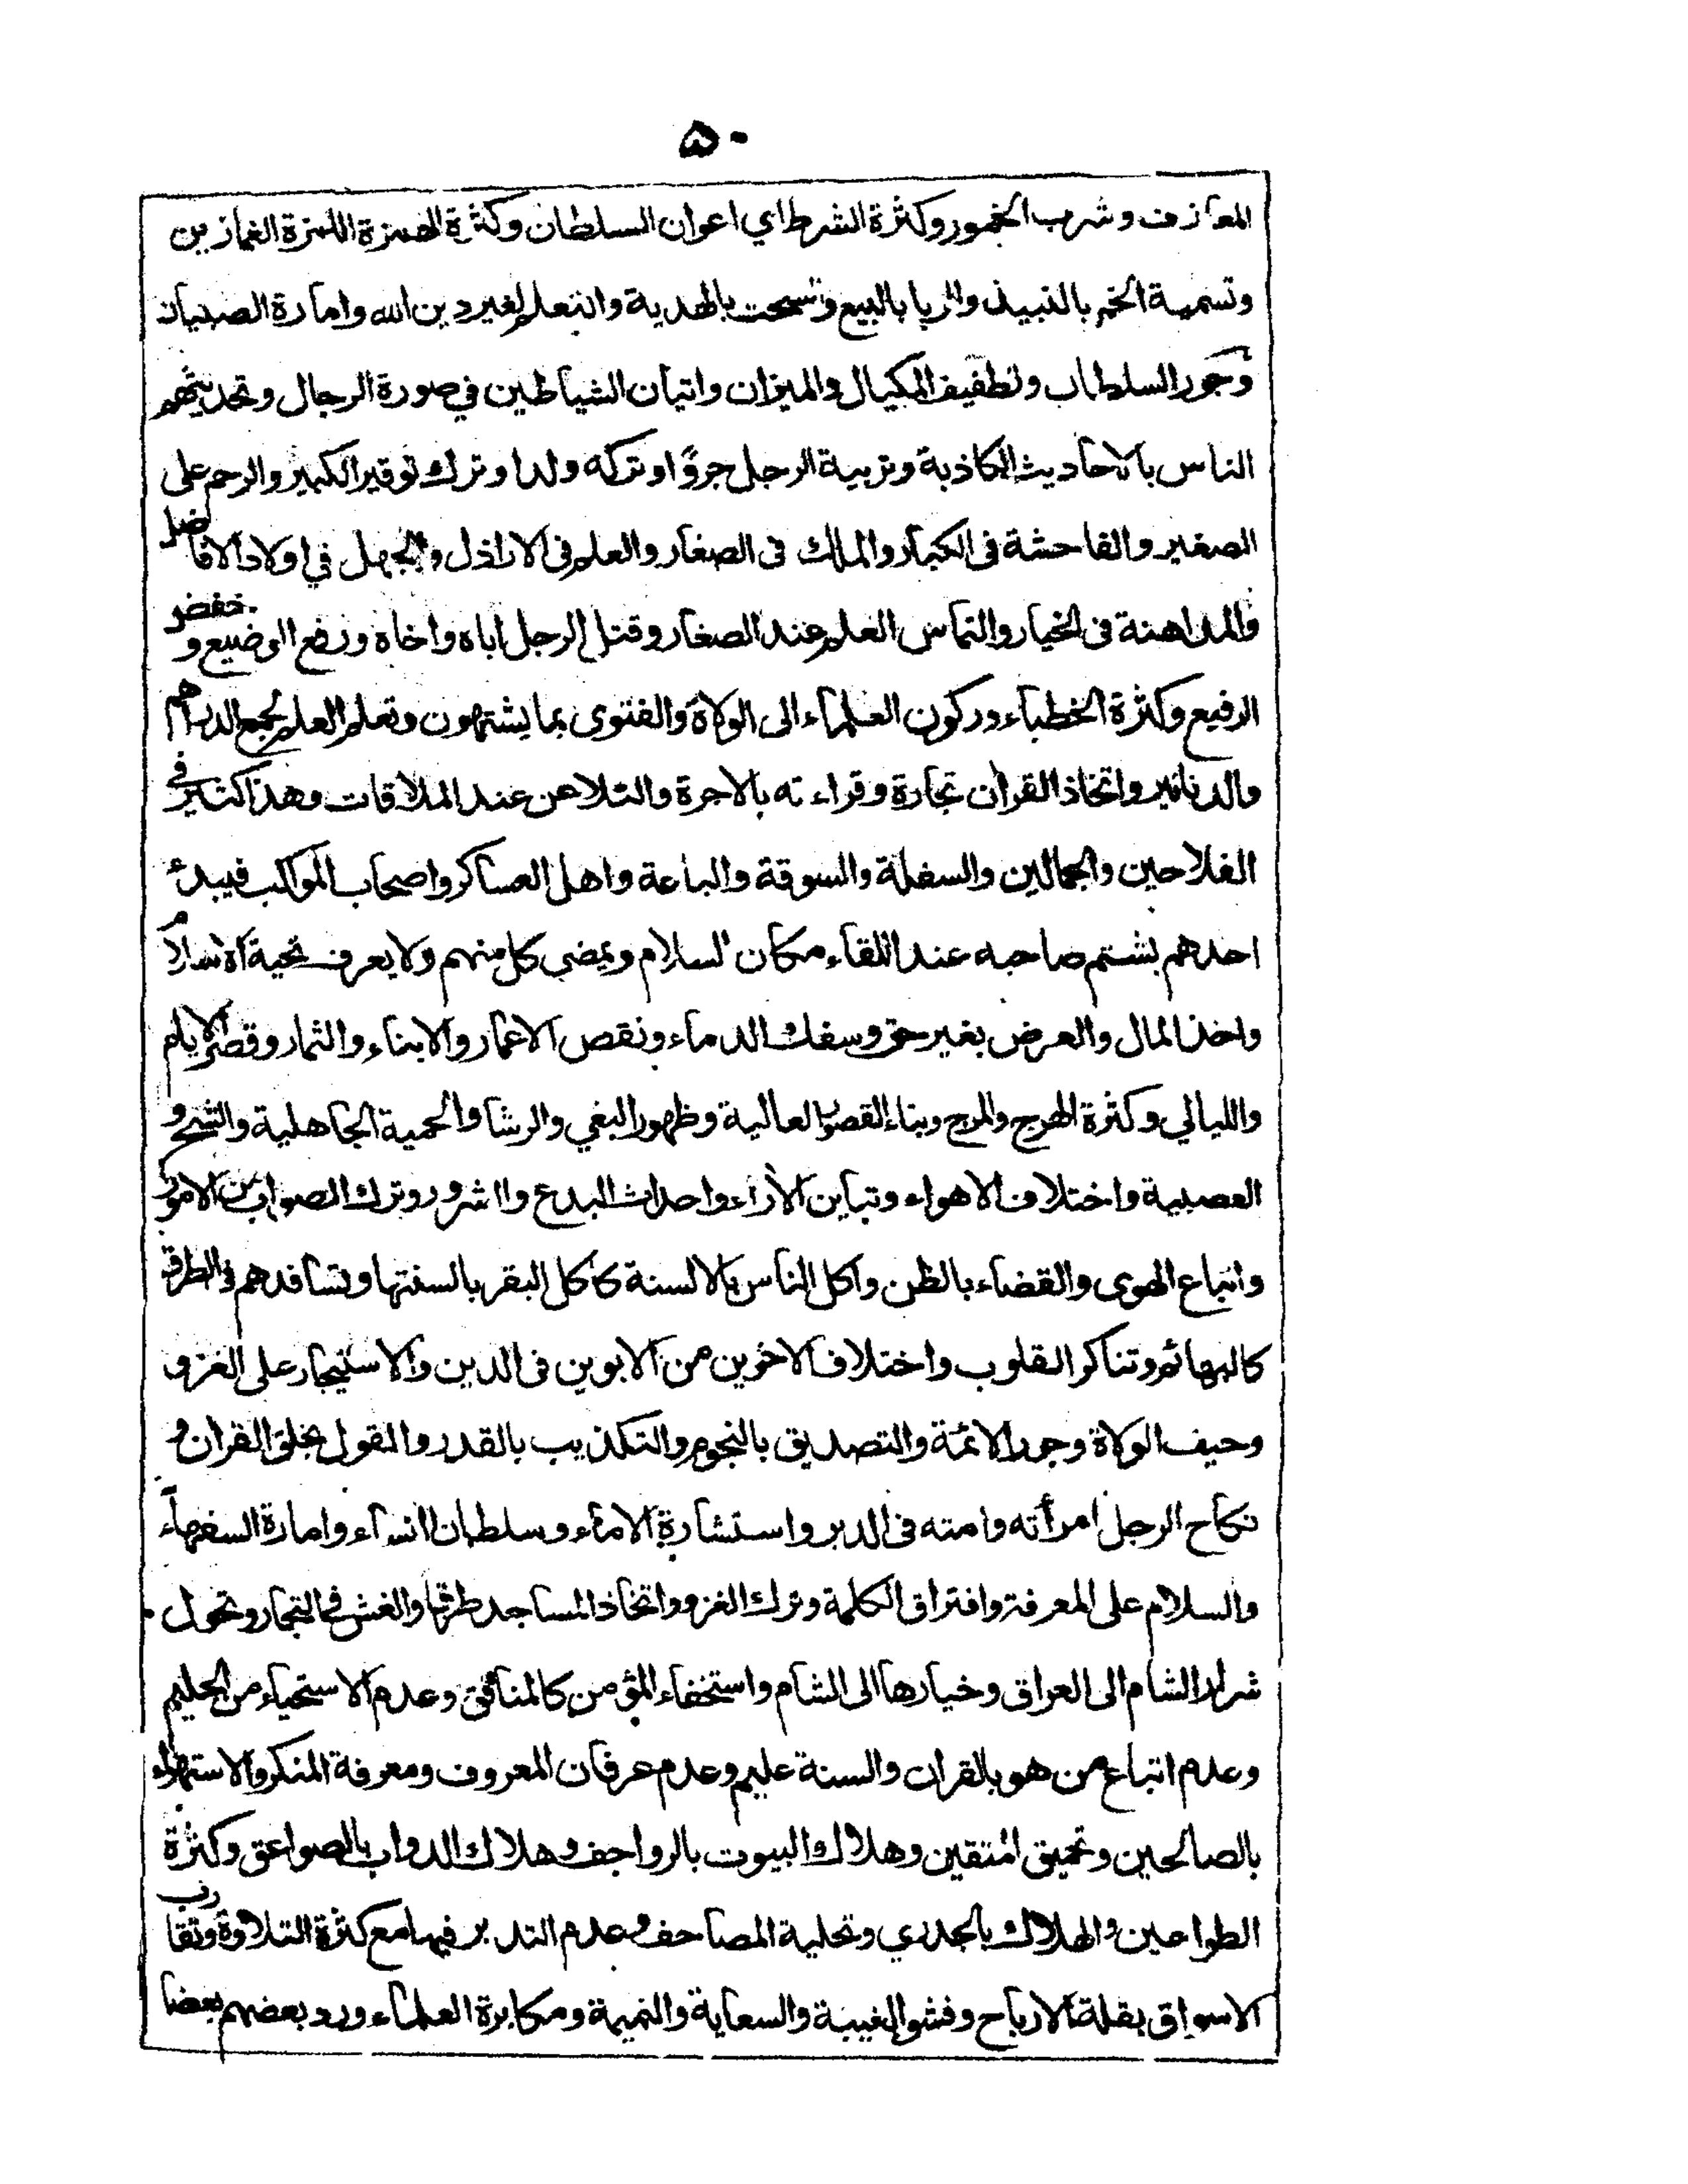 ۵۰
المعازف وشرب الخمور وكثرة الشرط اي اعوان السلطان وكثرة الهمزة اللمزة الغمازين
وتسمية الخمر بالنبيذ والربا بالبيع والسحت بالهدية والتعلم لغير دين الله وامارة الصبيان
وجور السلطان وتطفيف المكيال والميزان واتيان الشياطين في صورة الرجال وتحديثهم
الناس بالاحاديث الكاذبة وتربية الرجل جروًا وتركه ولدا وترك توقير الكبير والرحم على
الصغير والفاحشة فى الكبار والملك فى الصغار والعلم فى الاراذل والجهل في اولاد الافاضل
والمداهنة فى الخيار والتماس العلم عند الصغار وقتل الرجل اباه واخاه ورفع الوضيع وخفض
الرفيع وكثرة الخطباء وركون العلماء الى الولاة والفتوى بما يشتهون وتعلم العلم لجمع الدراهم
والدنانير واتخاذ القران تجارة وقراءته بالاجرة والتلاعن عند الملاقات وهذا كثير في
الفلاحين والجمالين والسفلة والسوقة والباعة واهل العساكر واصحاب المواكب فيبدء
احدهم بشتم صاحبه عند اللقاء مكان السلام ويمضى كل منهم ولا يعرف تحية الاسلام
واخذ المال والعرض بغير حق وسفك الدماء ونقص الاعمار والابناء والثمار وقصر الايام
والليالي وكثرة الهرج والمرج وبناء القصور العالية وظهور البغي والرشا والحمية الجاهلية والشح و
العصبية واختلاف الاهواء وتباين الأراء واحداث البدع والشرور وترك الصواب من الامور
واتباع الهوى والقضاء بالظن واكل الناس بالالسنة كاكل البقر بالسنتها وتسافدهم فى الطرق
كالبهائم وتناكر القلوب واختلاف الاخوين من الابوين فى الدين والاستيجار على الغزو
وحيف الولاة وجور الائمة والتصديق بالنجوم والتكذيب بالقدر والقول بخلق القران و
نكاح الرجل امرأته وامته فى الدبر واستشارة الاماء وسلطان النساء وامارة السفهاء
والسلام على المعرفة وافتراق الكلمة وترك الغزو واتخاذ المساجد طرقا والغش فى التجار وتحول
شرار الشام الى العراق وخيارها الى الشام واستخفاء المؤمن كالمنافق وعدم الاستحياء من الحليم
وعدم اتباع من هو بالقران والسنة عليم وعدم عرفان المعروف ومعرفة المنكر والاستهزاء
بالصالحين وتحميق المتقين وهلاك البيوت بالرواجف وهلاك الدواب بالصواعق وكثرة
الطواعين والهلاك بالجدري وتحلية المصاحف وعدم التدبر فيها مع كثرة التلاوة وتقارب
الاسواق بقلة الارباح وفشو الغيبة والسعاية والنميمة ومكابرة العلماء ورد بعضهم بعضا